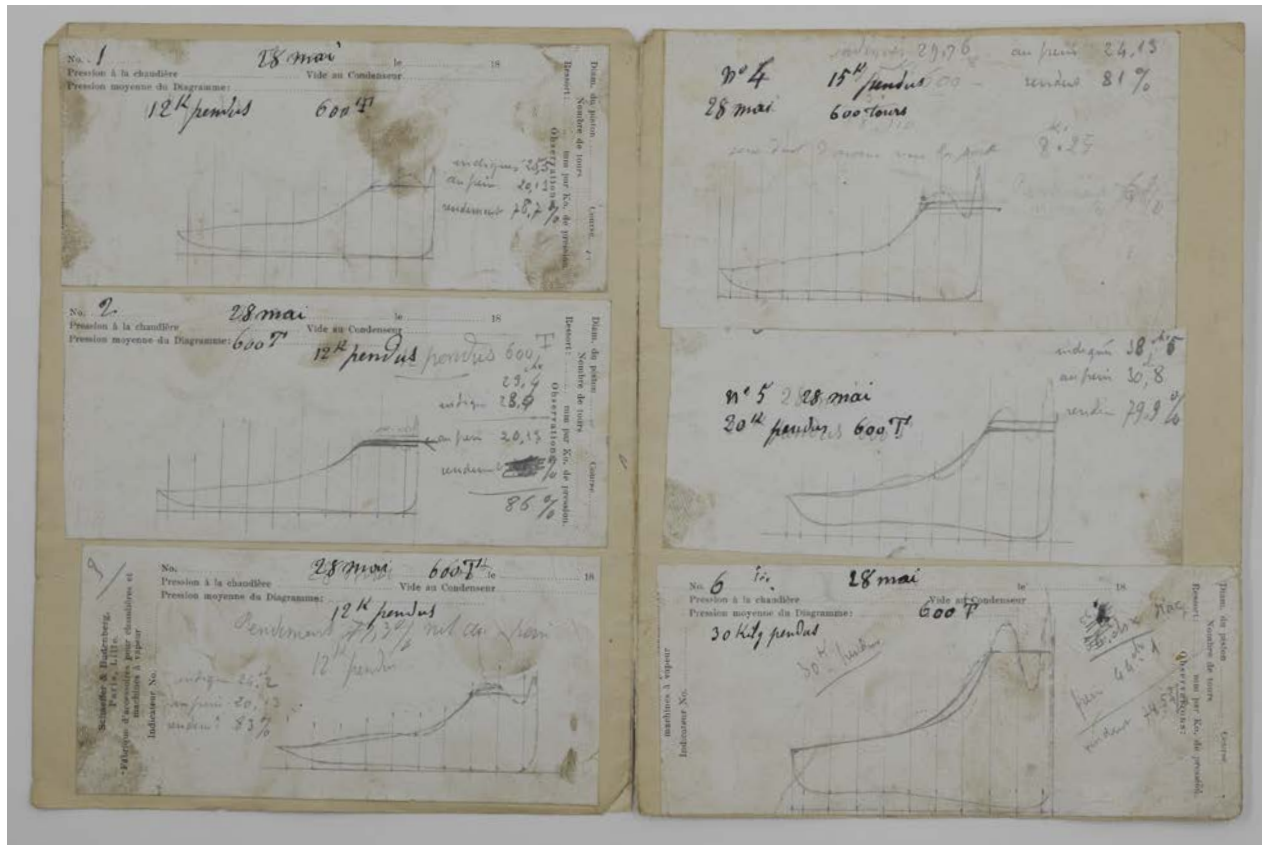 No. 1 28 mai le 18
Pression à la chaudière Vide au Condenseur
Pression moyenne du Diagramme:
12 K pendus 600 T
indiqués 25,5
au frein 20,13
rendement 78,7 %
Diam. du piston Course
Nombre de tours
Ressort: mm par Ko. de pression.
Observations
No. 2 28 mai le 18
Pression à la chaudière Vide au Condenseur
Pression moyenne du Diagramme: 600 T
12 K pendus pendus 600 T
29,4
indiqu 23,4
au frein 20,13
rendement %
86 %
Diam. du piston Course
Nombre de tours
Ressort: mm par Ko. de pression.
Observations
Schaeffer & Budenberg,
Paris, Lille.
Fabrique d'accessoires pour chaudières et
machines à vapeur
Indicateur No.
No. 28 mai 600 T le 18
Pression à la chaudière Vide au Condenseur
Pression moyenne du Diagramme:
12 K pendus
Rendement
12 K pendus
indiqué 24,2
au frein 20,13
rendemt 83 %
indiqués 29,76 au frein 24,13
n° 4 15 K pendus 600 rendemt 81 %
28 mai 600 tours
8,25
indiqué 38,5
au frein 30,8
n° 5 28 28 mai
rendem 79,9 %
20 K pendus 600 T
No. 6 28 mai le 18
Pression à la chaudière Vide au Condenseur
Pression moyenne du Diagramme: 600 T
30 Kilg pendus
30 K pendus
frein 44 ch 1
machines à vapeur
Indicateur No.
Diam. du piston Course
Nombre de tours
Ressort: mm par Ko. de pression.
Observations: